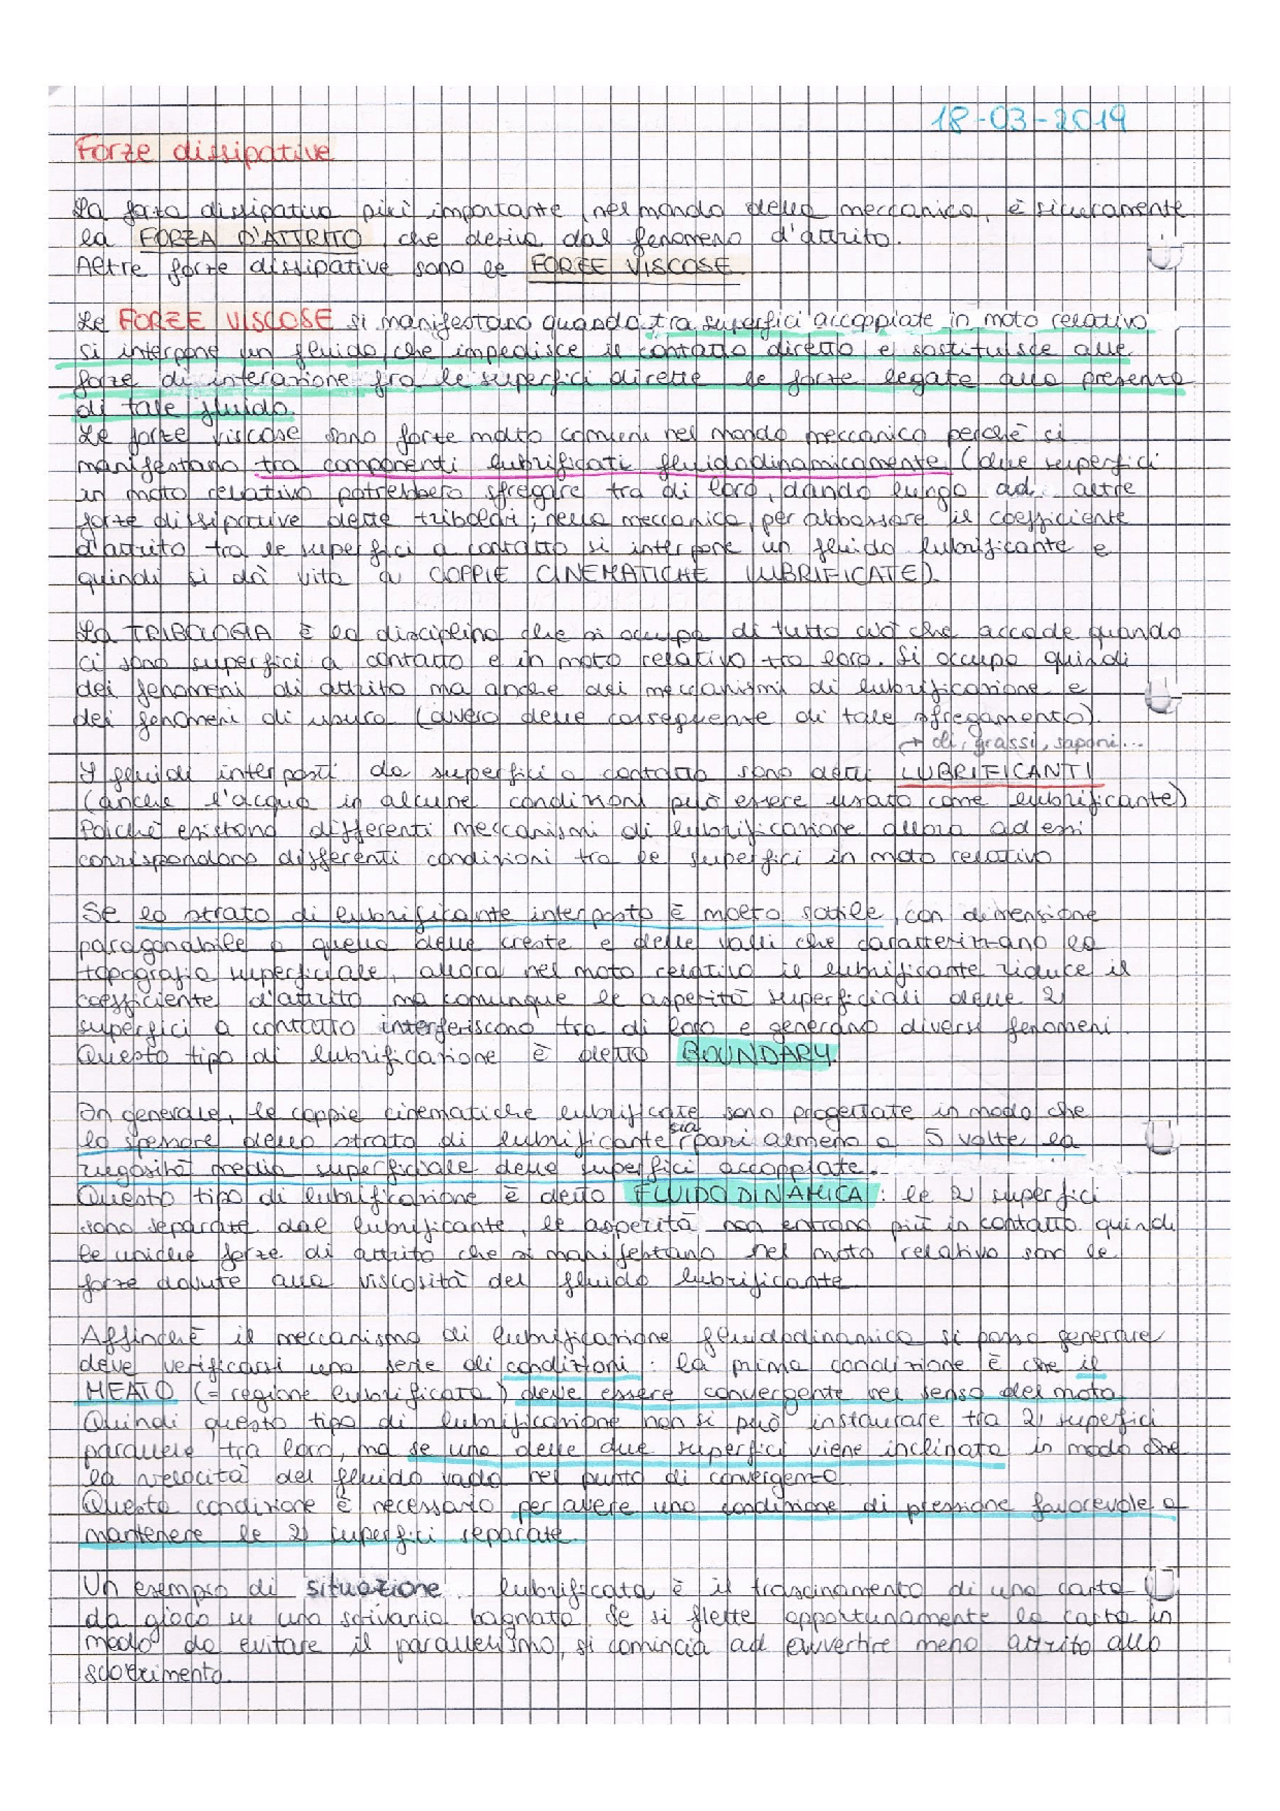 18-03-2019
Forze dissipative
La forza dissipativa più importante, nel mondo della meccanica, è sicuramente
la FORZA D'ATTRITO, che deriva dal fenomeno d'attrito.
Altre forze dissipative sono le FORZE VISCOSE.
Le FORZE VISCOSE si manifestano quando tra superfici accoppiate in moto relativo
si interpone un fluido, che impedisce il contatto diretto e sostituisce alle
forze di interazione fra le superfici dirette le forze legate alla presenza
di tale fluido.
Le forze viscose sono forze molto comuni nel mondo meccanico perchè si
manifestano tra componenti lubrificati fluidodinamicamente (due superfici
in moto relativo potrebbero sfregare tra di loro, dando luogo ad altre
forze dissipative dette tribolari; nella meccanica, per abbassare il coefficiente
d'attrito tra le superfici a contatto si interpone un fluido lubrificante e
quindi si dà vita a COPPIE CINEMATICHE LUBRIFICATE).
La TRIBOLOGIA è la disciplina che si occupa di tutto ciò che accade quando
ci sono superfici a contatto e in moto relativo tra loro. Si occupa quindi
dei fenomeni di attrito ma anche dei meccanismi di lubrificazione e
dei fenomeni di usura (ovvero delle conseguenze di tale sfregamento).
oli, grassi, saponi...
I fluidi interposti da superfici a contatto sono detti LUBRIFICANTI
(anche l'acqua in alcune condizioni può essere usata come lubrificante)
Poichè esistono differenti meccanismi di lubrificazione allora ad essi
corrispondono differenti condizioni tra le superfici in moto relativo
Se lo strato di lubrificante interposto è molto sottile, con dimensione
paragonabile a quella delle creste e delle valli che caratterizzano la
topografia superficiale, allora nel moto relativo il lubrificante riduce il
coefficiente d'attrito ma comunque le asperità superficiali delle 2
superfici a contatto interferiscono tra di loro e generano diversi fenomeni.
Questo tipo di lubrificazione è detto BOUNDARY.
In generale, le coppie cinematiche lubrificate sono progettate in modo che
lo spessore dello strato di lubrificante sia pari almeno a 5 volte la
rugosità media superficiale delle superfici accoppiate.
Questo tipo di lubrificazione è detto FLUIDODINAMICA: le 2 superfici
sono separate dal lubrificante, le asperità non entrano più in contatto quindi
le uniche forze di attrito che si manifestano nel moto relativo sono le
forze dovute alla viscosità del fluido lubrificante
Affinchè il meccanismo di lubrificazione fluidodinamica si possa generare
deve verificarsi una serie di condizioni: la prima condizione è che il
MEATO (= regione lubrificata) deve essere convergente nel senso del moto.
Quindi questo tipo di lubrificazione non si può instaurare tra 2 superfici
parallele tra loro, ma se una delle due superfici viene inclinata in modo che
la velocità del fluido vada nel punto di convergenza.
Questa condizione è necessaria per avere una condizione di pressione favorevole a
mantenere le 2 superfici separate.
Un esempio di situazione lubrificata è il trascinamento di una carta
da gioco su una scrivania bagnata. Se si flette opportunamente la carta in
modo da evitare il parallelismo, si comincia ad avvertire meno attrito allo
scorrimento.